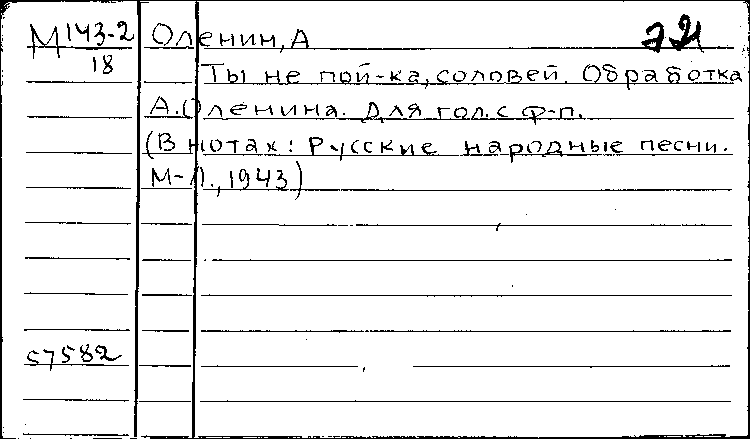 М 143-2 Оленин, А
18
Ты не пой-ка, соловей. Обработка
А.Оленина. Для гол. с ф-п.
(В нотах: Русские народные песни.
М-Л., 1943)
57582